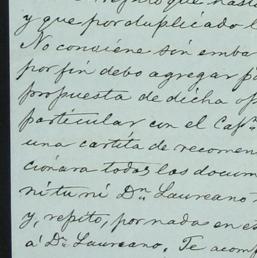 y que por duplicado l
No conviene sin emba
por fin debo agregar pa
propuesta de dicha op
particular con el Capn
una cartita de recomen
cionára todas los docum
ni tu ni Dn Laureano
y, repito, por nadas en es
á Dn Laureano. Te acomp